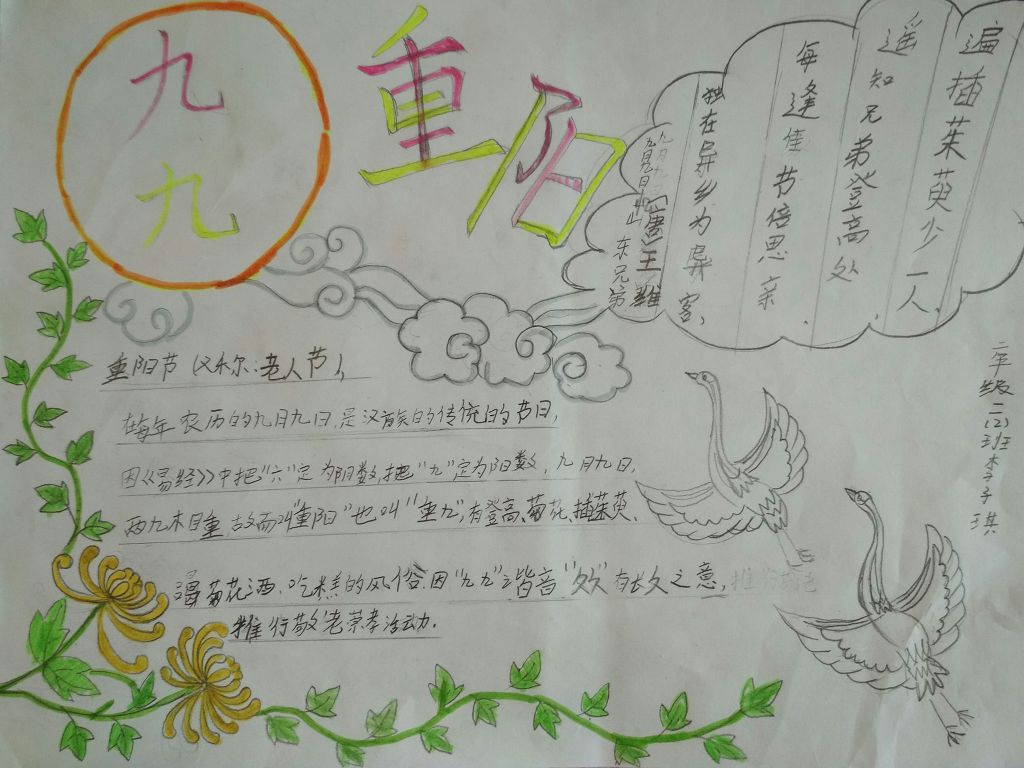 九
九
重阳
遍插茱萸少一人,
遥知兄弟登高处
每逢佳节倍思亲、
独在异乡为异客,
九月九日忆山东兄弟
(唐)王维
重阳节(又称:老人节),
在每年农历的九月九日,是汉族的传统的节日,
因《易经》中把“六”定为阴数,把“九”定为阳数,九月九日,
两九相重,故而叫“重阳”也叫“重九”,有登高、菊花、插茱萸、
喝菊花酒、吃糕的风俗.因“九九”谐音“久久”有长久之意,
推行敬老崇孝活动.
二年级二(2)班李子琪